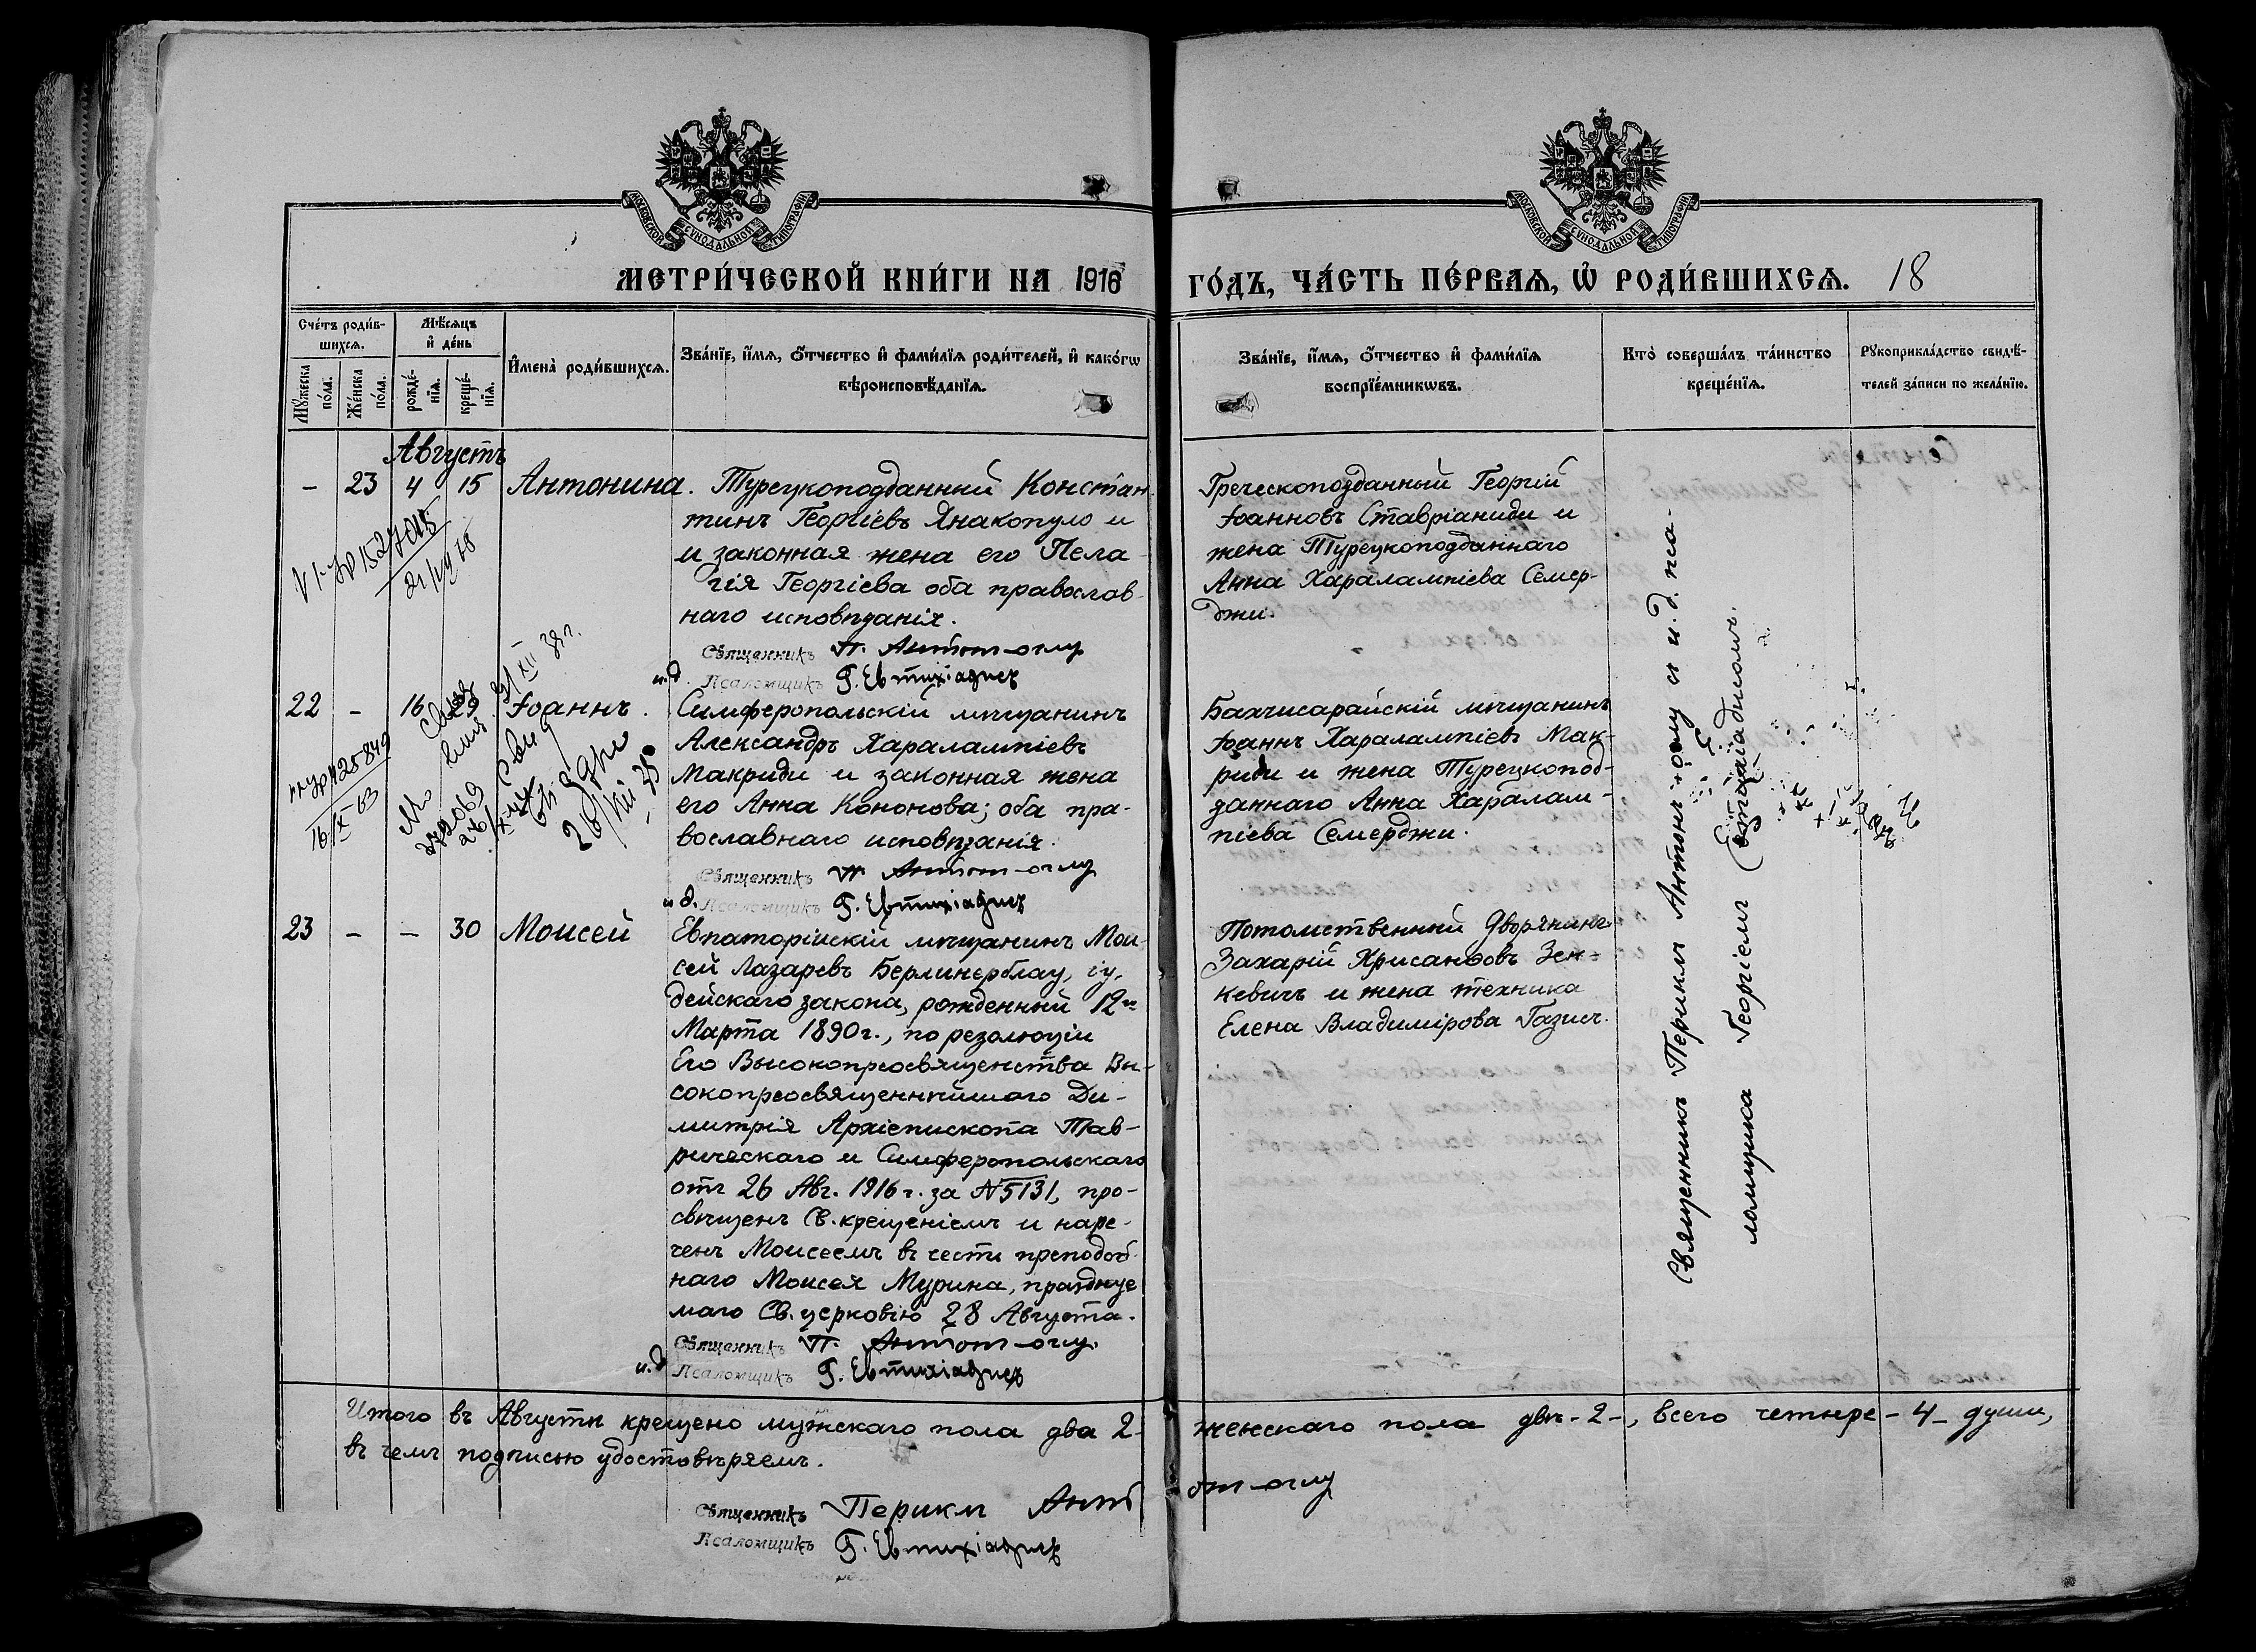 МОСКОВСКОЙ СѴНОДАЛЬНОЙ ТИПОГРАФІИ
МОСКОВСКОЙ СѴНОДАЛЬНОЙ ТИПОГРАФІИ
МЕТРИ́ЧЕСКОЙ КНИ́ГИ НА 1916
ГО́ДЪ, ЧА́СТЬ ПЕ́РВАѦ, Ѡ҆ РОДИ́ВШИХСѦ. 18
Сче́тъ роди́в-
шихсѧ.
Мꙋ́жеска по́ла.
Же́нска по́ла.
Мѣ́сѧцъ
и҆ де́нь
рожде́-
нїѧ.
креще́-
нїѧ.
И҆мена̀ роди́вшихсѧ.
Зва́нїе, и҆́мѧ, ѻ҆́тчество и҆ фами́лїѧ роди́телей, и҆ како́гѡ
вѣроисповѣ́данїѧ.
Зва́нїе, и҆́мѧ, ѻ҆́тчество и҆ фами́лїѧ
воспрїе́мникѡвъ.
Кто̀ соверша́лъ та́инство
креще́нїѧ.
Рꙋкоприкла́дство свидѣ́-
телей за́писи по жела́нїю.
Августъ
- 23 4 15 Антонина. Турецкоподданный Констан-
тинъ Георгіевъ Янакопуло и
и законная жена его Пела-
гія Георгіева оба православ-
наго исповѣданія.
Священникъ П. Антон-оглу
и.д. Псаломщикъ Г. Евтихіадисъ
Греческоподданный Георгій
Іоанновъ Ставріаниди и
жена Турецкоподданнаго
Анна Харалампіева Семер-
джи.
22 - 16 29 Іоаннъ. Симферопольскій мѣщанинъ
Александръ Харалампіевъ
Макриди и законная жена
его Анна Кононова; оба пра-
вославнаго исповѣданія.
Священникъ П. Антон-оглу
и.д. Псаломщикъ Г. Евтихіадисъ
Бахчисарайскій мѣщанинъ
Іоаннъ Харалампіевъ Мак-
риди и жена Турецкопод-
даннаго Анна Харалам-
піева Семерджи.
16/X 63
23 - - 30 Моисей Евпаторійскій мѣщанинъ Мои-
сей Лазаревъ Берлинерблау, іу-
дейскаго закона, рожденный 12го
Марта 1890г., по резолюціи
Его Высокопреосвященства Вы-
сокопреосвященнѣйшаго Ди-
митрія Архіепископа Тав-
рическаго и Симферопольскаго
отъ 26 Авг. 1916г. за N5131, про-
свѣщенъ Св. крещеніемъ и наре-
ченъ Моисеемъ въ честь преподоб-
наго Моисея Мурина, празднуе
маго Св. церковію 28 Августа.
Священникъ П. Антон-оглу.
и.д. Псаломщикъ Г. Евтихіадисъ
Потомственный дворянинъ
Захарій Хрисанфовъ Зен-
кевичъ и жена техника
Елена Владимірова Газисъ.
Священникъ Периклъ Антонъ-оглу и и.д. пса-
ломщика Георгіемъ Евтихіадисомъ.
Итого въ Августѣ крещено мужскаго пола два 2- женскаго пола двѣ-2-, всего четыре-4- души,
въ чемъ подписью удостовѣряемъ.
Священникъ Периклъ Антон-оглу
Псаломщикъ Г. Евтихіадисъ